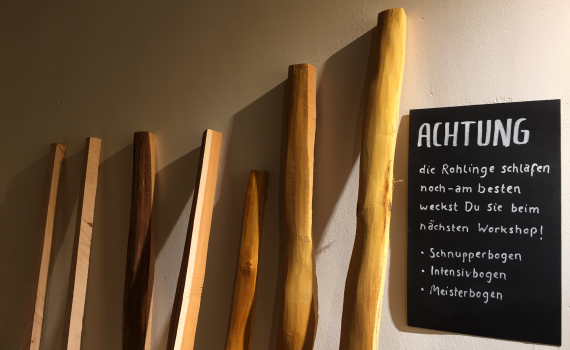 ACHTUNG
die Rohlinge schlafen
noch-am besten
weckst Du sie beim
nächsten Workshop!
• Schnupperbogen
• Intensivbogen
• Meisterbogen